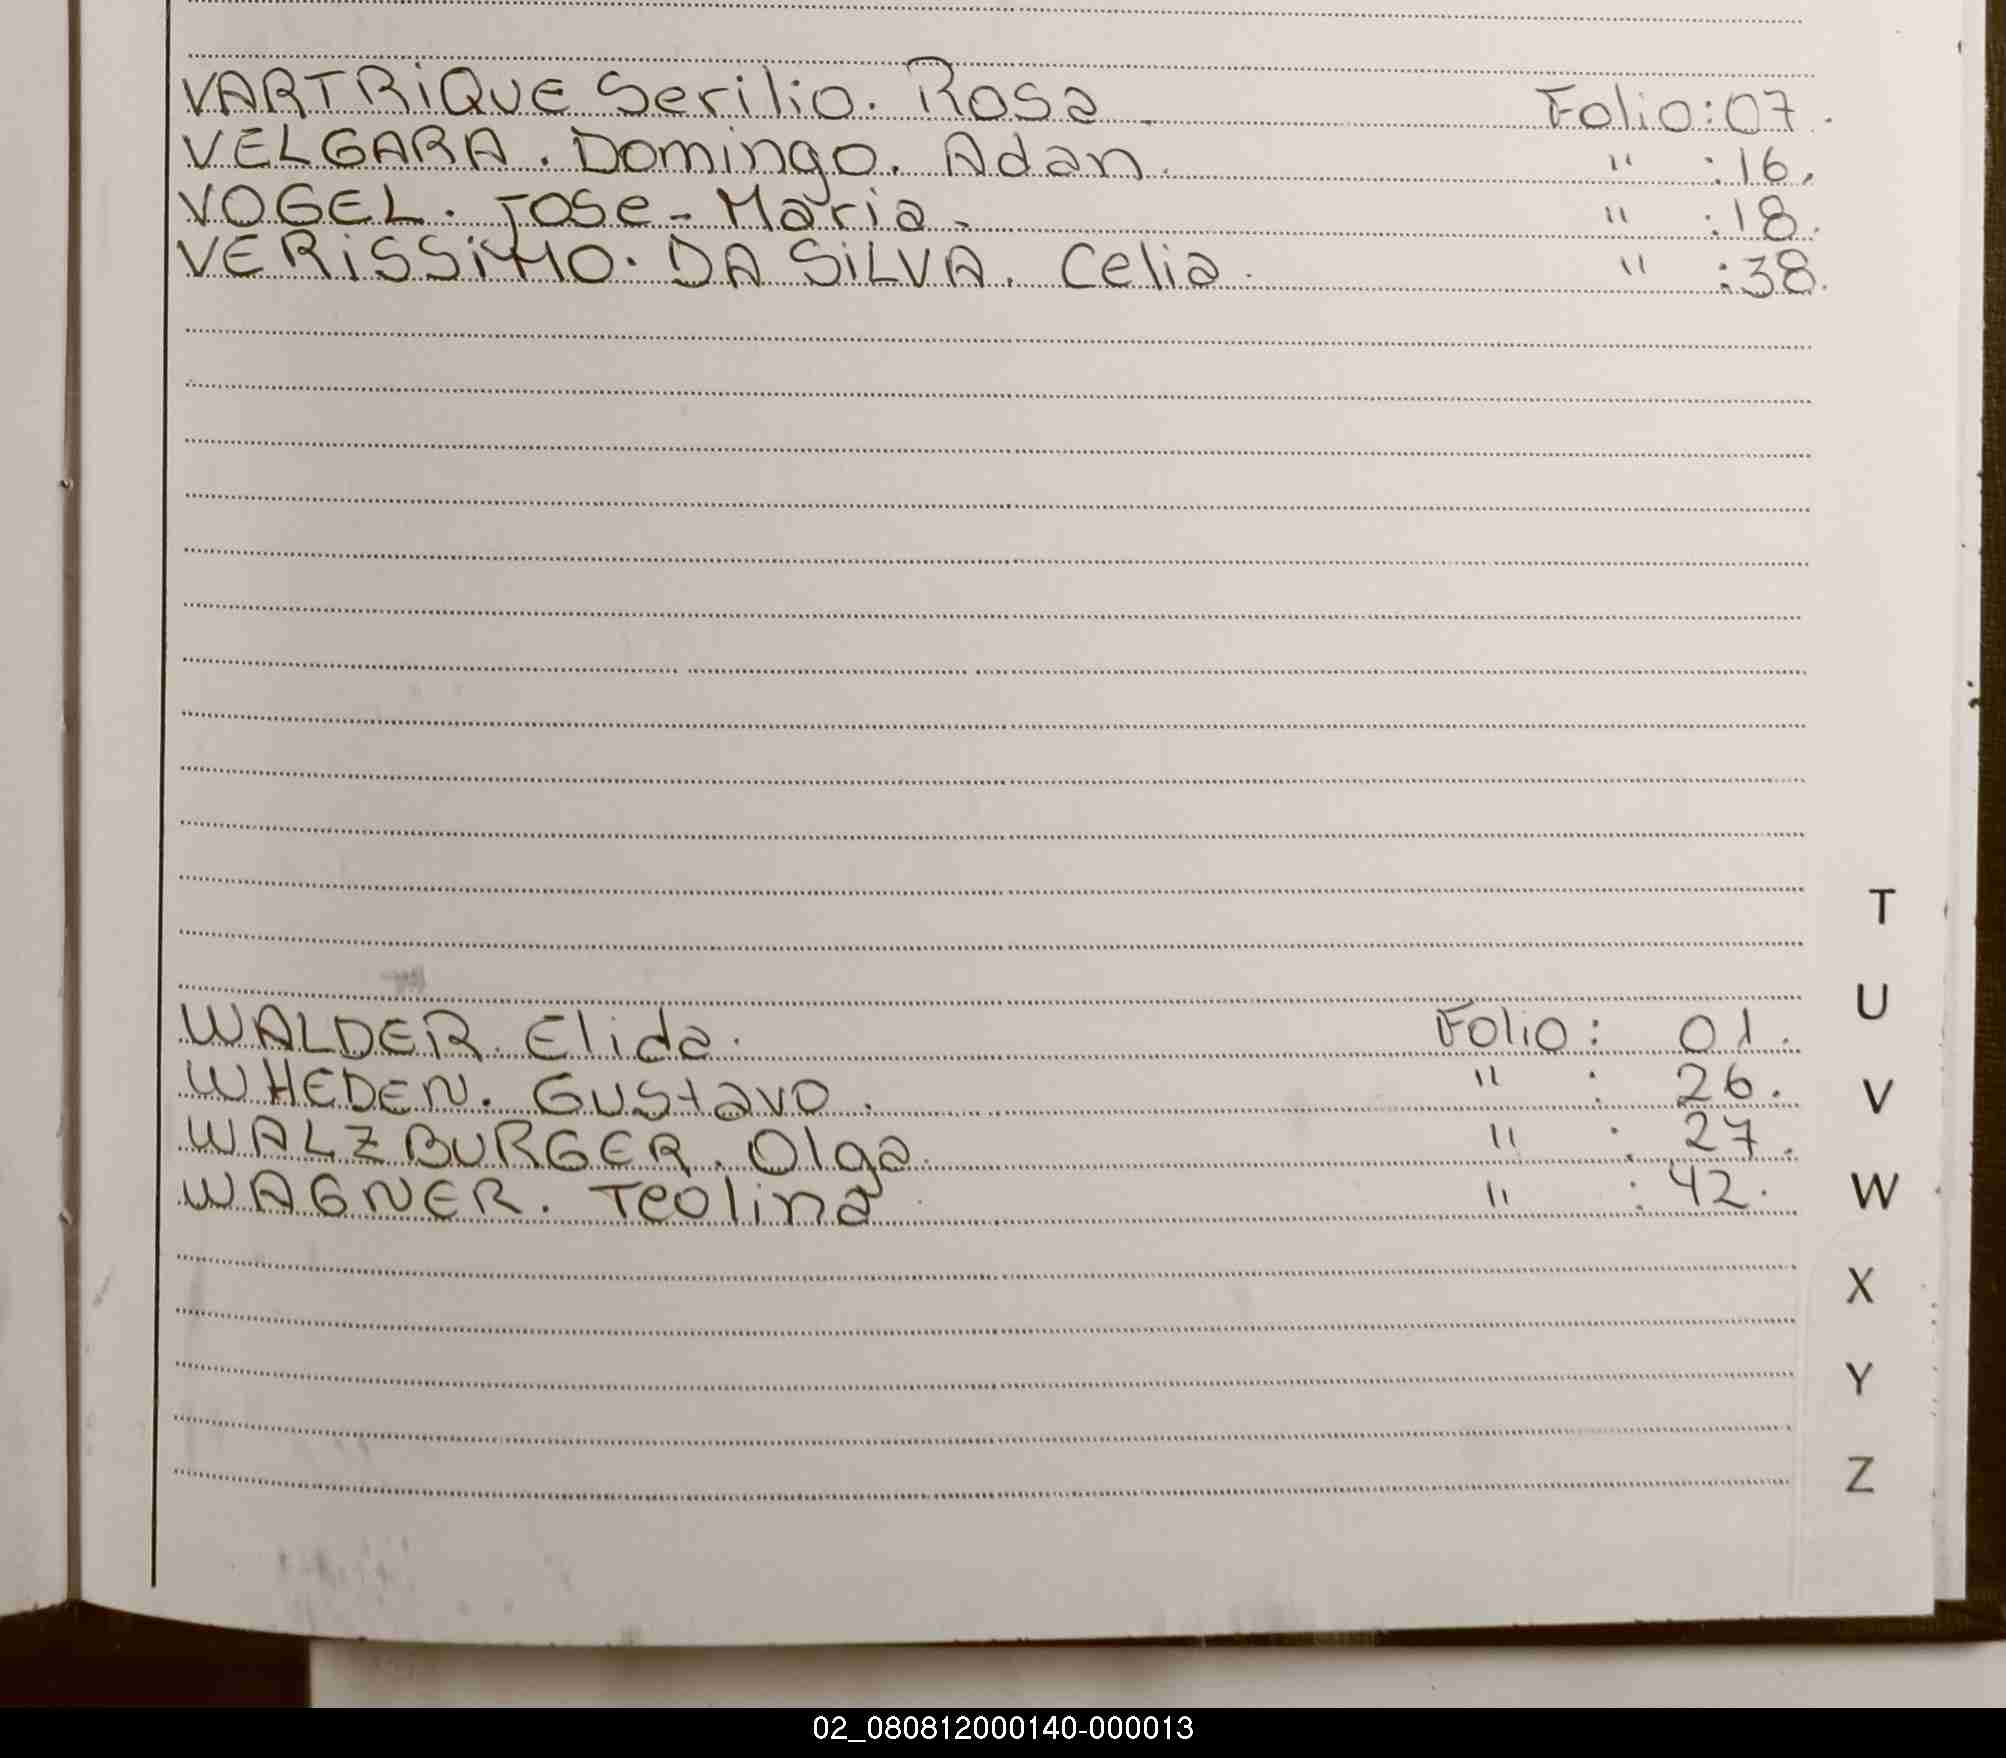 VARTRIQUE Serilio. Rosa. Folio: 07.
VELGARA. Domingo. Adan. " : 16.
VOGEL. Jose-Maria. " : 18.
VERISSIMO. DA SILVA. Celia. " : 38.
WALDER. Elida. Folio: 01.
WHEDEN. Gustavo. " : 26.
WALZBURGER. Olga. " : 27.
WAGNER. Teolina. " : 42.
T
U
V
W
X
Y
Z
02_080812000140-000013